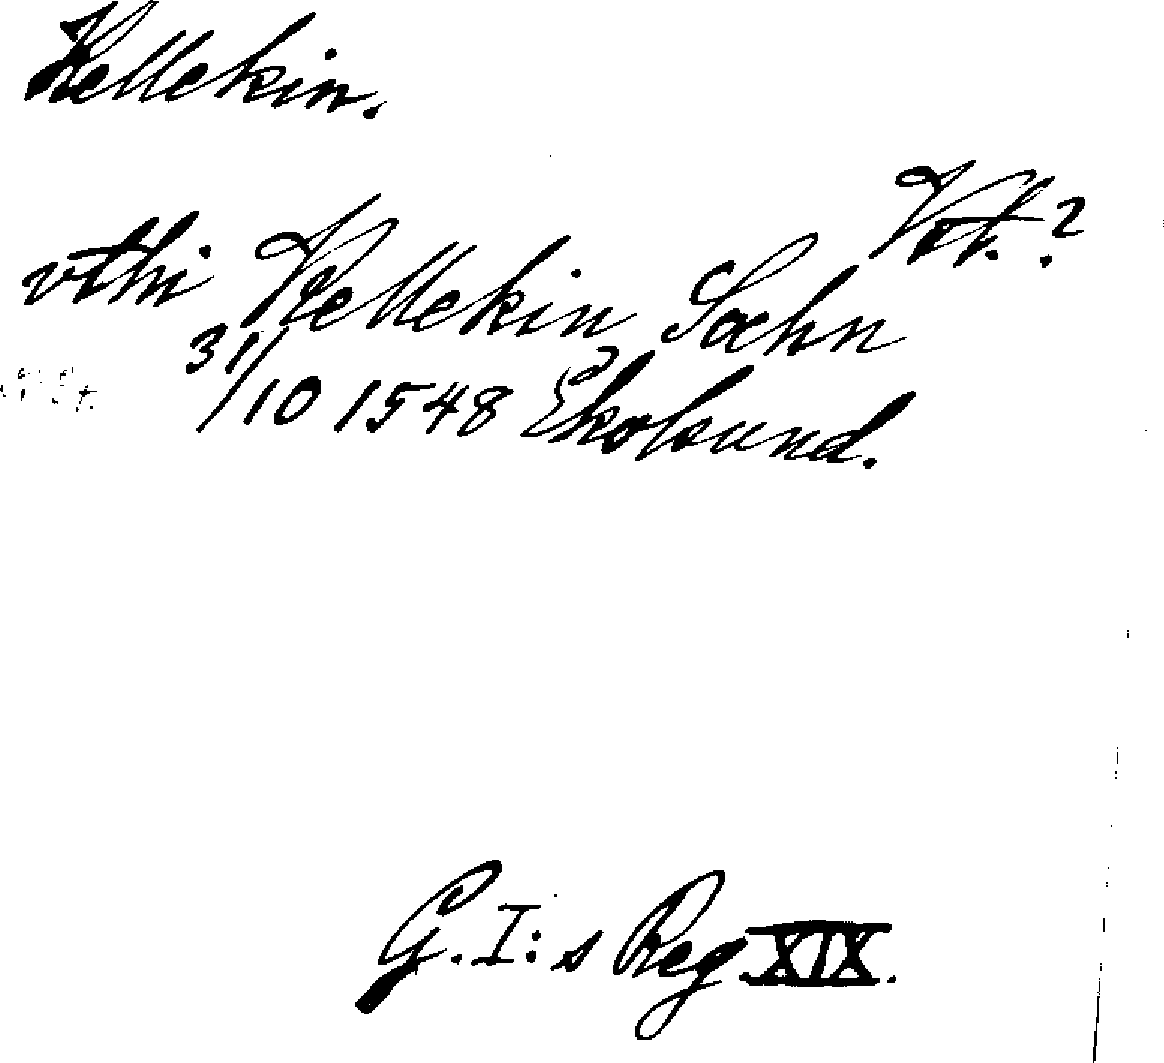 Kellekin.
Vst.?
vthi Kellekin Sochn
31/10 1548 Ekolsund.
G.I:s Reg. XIX.